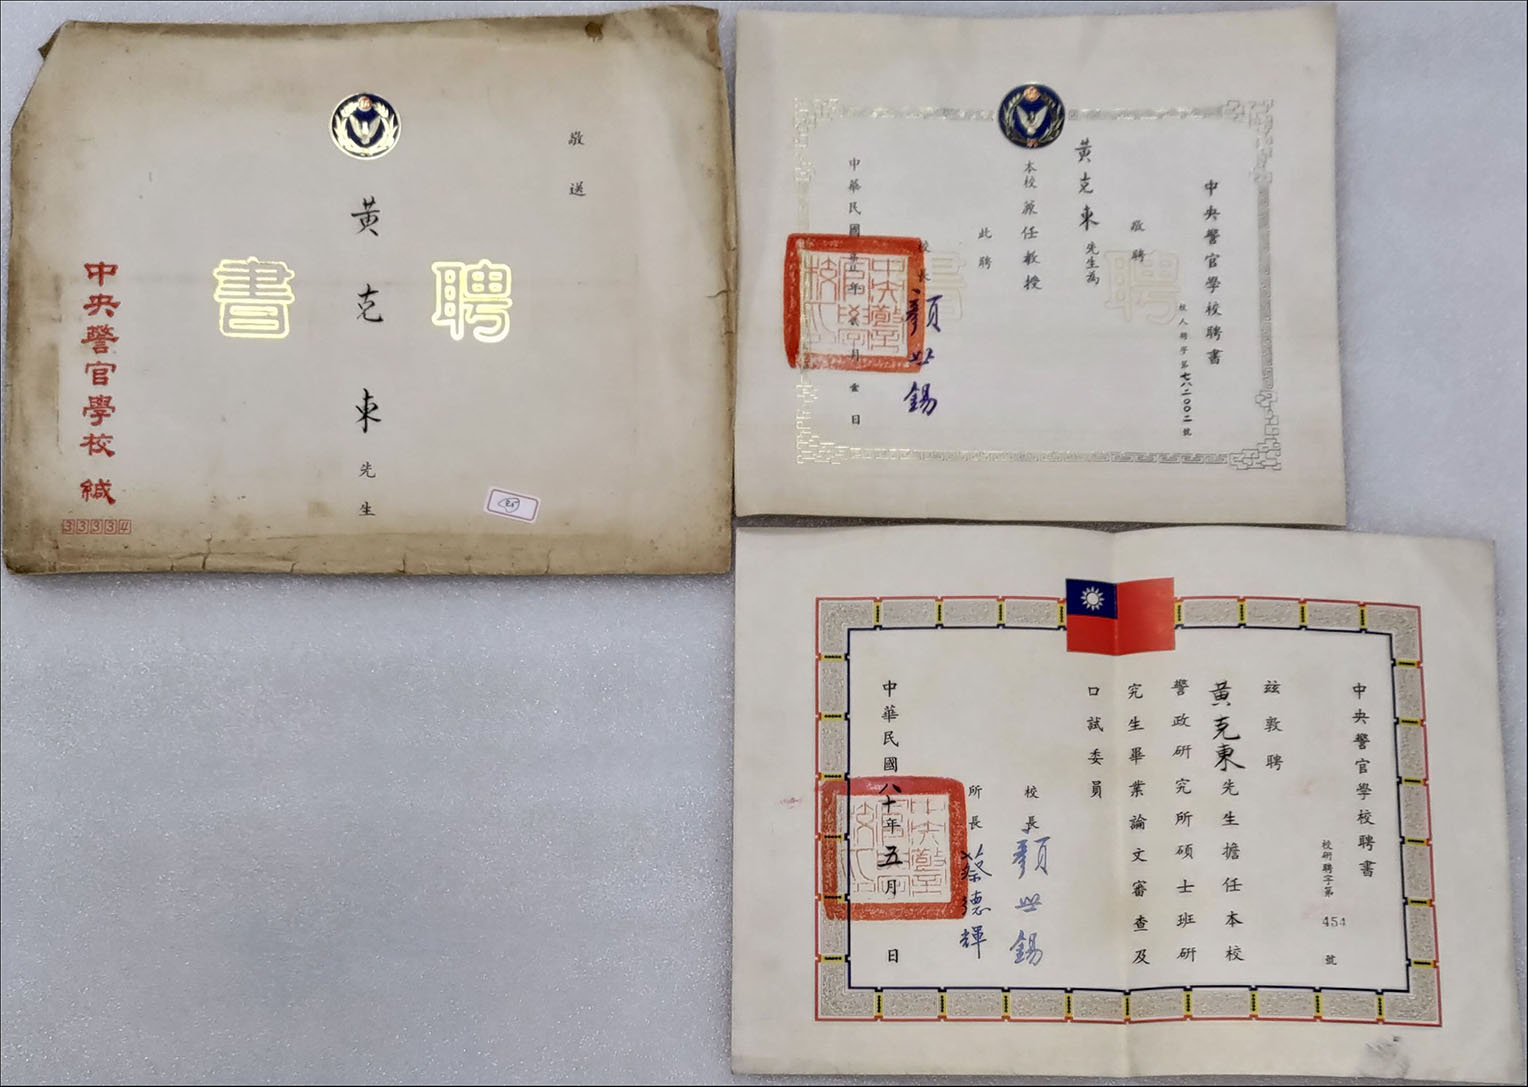 敬送
黃克東先生
聘書
中央警官學校 緘
33334
中央警官學校聘書
校人聘字第七八二〇〇二號
敬聘
黃克東先生為
本校兼任教授
此聘
聘書
校長 顏世錫
中華民國
年
月
壹日
中央警官學校聘書
校研聘字第 454 號
茲敦聘
黃克東先生擔任本校
警政研究所碩士班研
究生畢業論文審查及
口試委員
校長 顏世錫
所長 蔡德輝
中華民國八十年五月 日